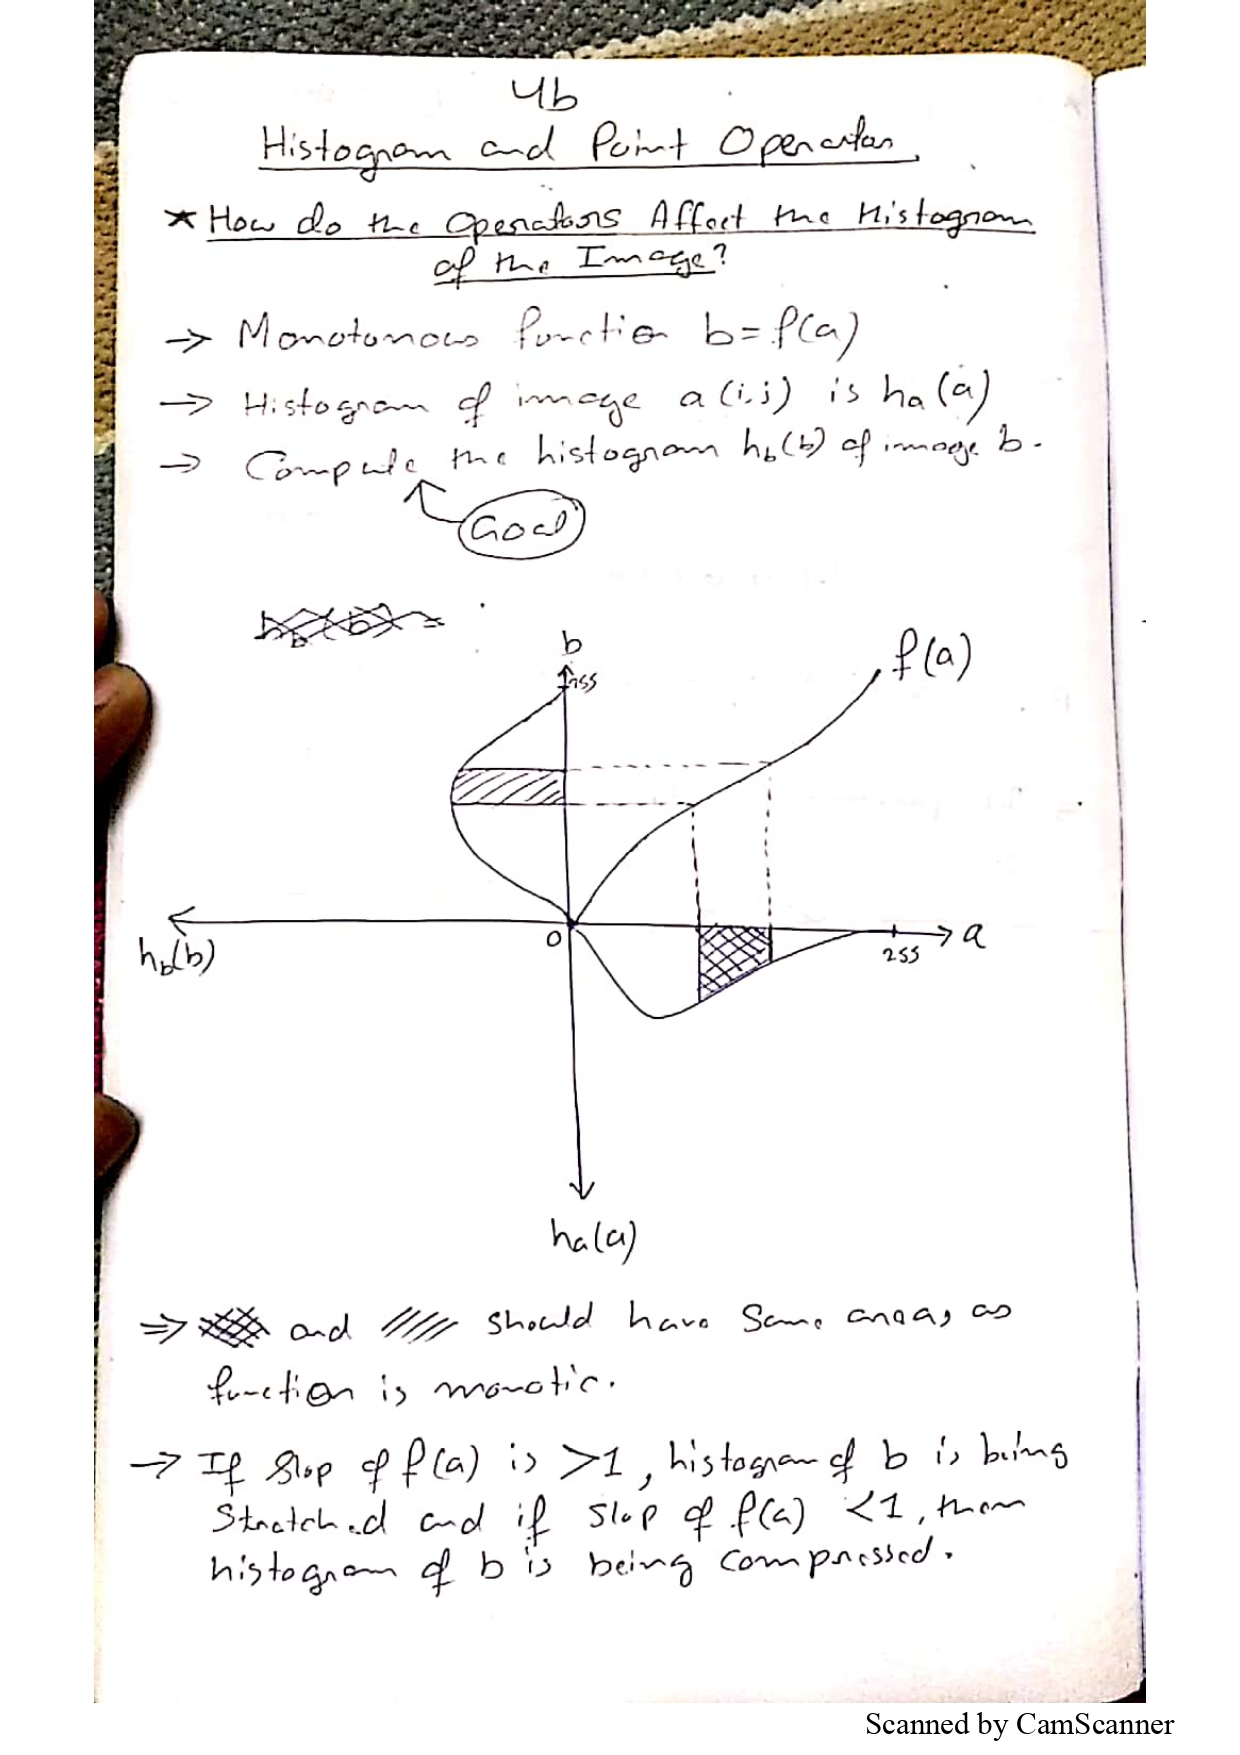 4b
Histogram and Point Operators
* How do the Operators Affect the Histogram
of the Image?
→ Monotonous function b = f(a)
→ Histogram of image a(i,j) is ha(a)
→ Compute the histogram hb(b) of image b.
Goal
b
255
f(a)
0
255
a
hb(b)
ha(a)
⇒ and should have same areas, as
function is monotic.
→ If slop of f(a) is >1, histogram of b is being
Stretched and if slop of f(a) <1, then
histogram of b is being compressed.
Scanned by CamScanner